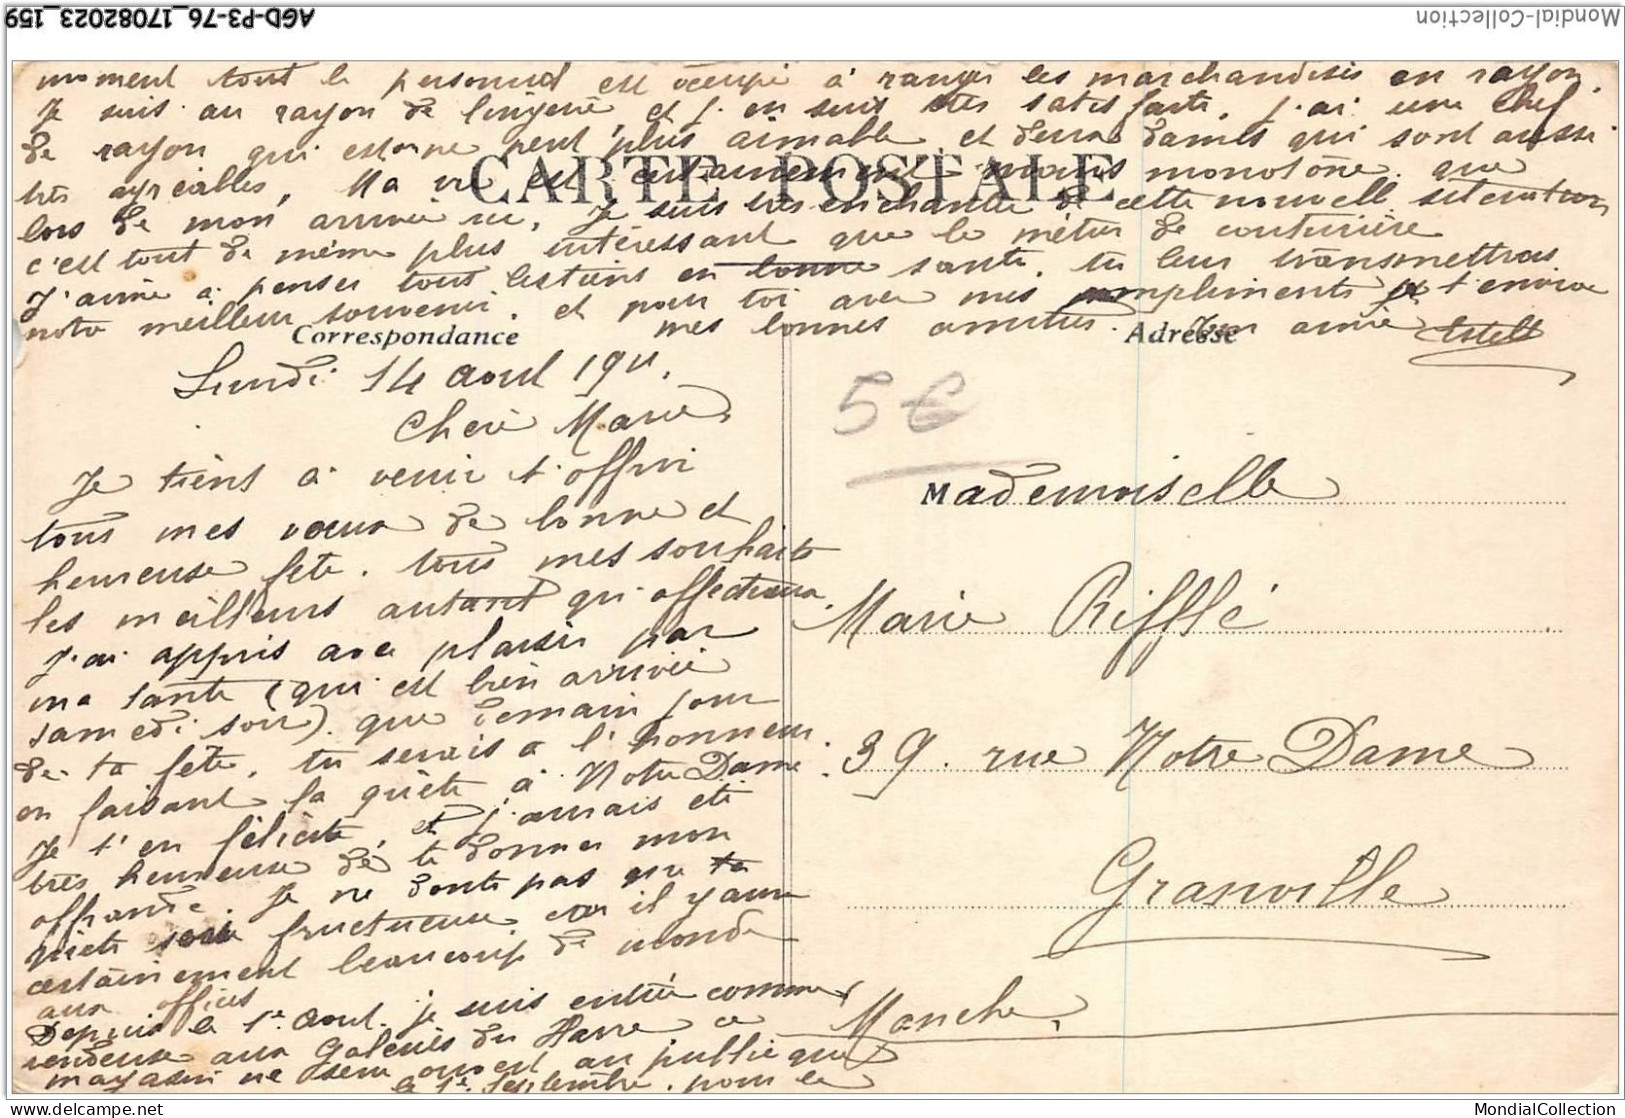 AGD-P3-76_17082023_159
Mondial-Collection
CARTE POSTALE
Correspondance
Adresse
Lundi 14 aout 1911.
Chère Marie,
Je tiens à venir t'offrir
tous mes vœux de bonne et
heureuse fête. tous mes souhaits
les meilleurs autant qu'affectueux.
J'ai appris avec plaisir par
ma tante (qui est bien arrivée
samedi soir) que demain jour
de ta fête, tu serais à l'honneur
en faisant la quête à Notre Dame.
Je t'en félicite, et j'aurais été
très heureuse de te donner mon
offrande. Je ne doute pas que ta
quête soit fructueuse car il y aura
certainement beaucoup de monde
aux offices
Depuis le 1er aout. je suis entrée comme
vendeuse aux Galeries du Havre ce
magasin ne sera ouvert au public que
le 1er Septembre. pour le
moment tout le personnel est occupé à ranger les marchandises en rayon.
Je suis au rayon de lingerie, et j'en suis très satisfaite, j'ai une chef
de rayon qui est on ne peut plus aimable et deux dames qui sont aussi
très agréables, Ma vie est certainement moins monotone que
lors de mon arrivée ici, Je suis très enchantée de cette nouvelle situation
c'est tout de même plus intéressant que le métier de couturière
J'aime à penser tout les tiens en bonne santé, tu leur transmettras
notre meilleur souvenir, et pour toi avec mes compliments je t'envoie
mes bonnes amitiés. Ton amie Estelle
5€
Mademoiselle
Marie Rifflé
39. rue Notre Dame
Granville
Manche.
MondialCollection